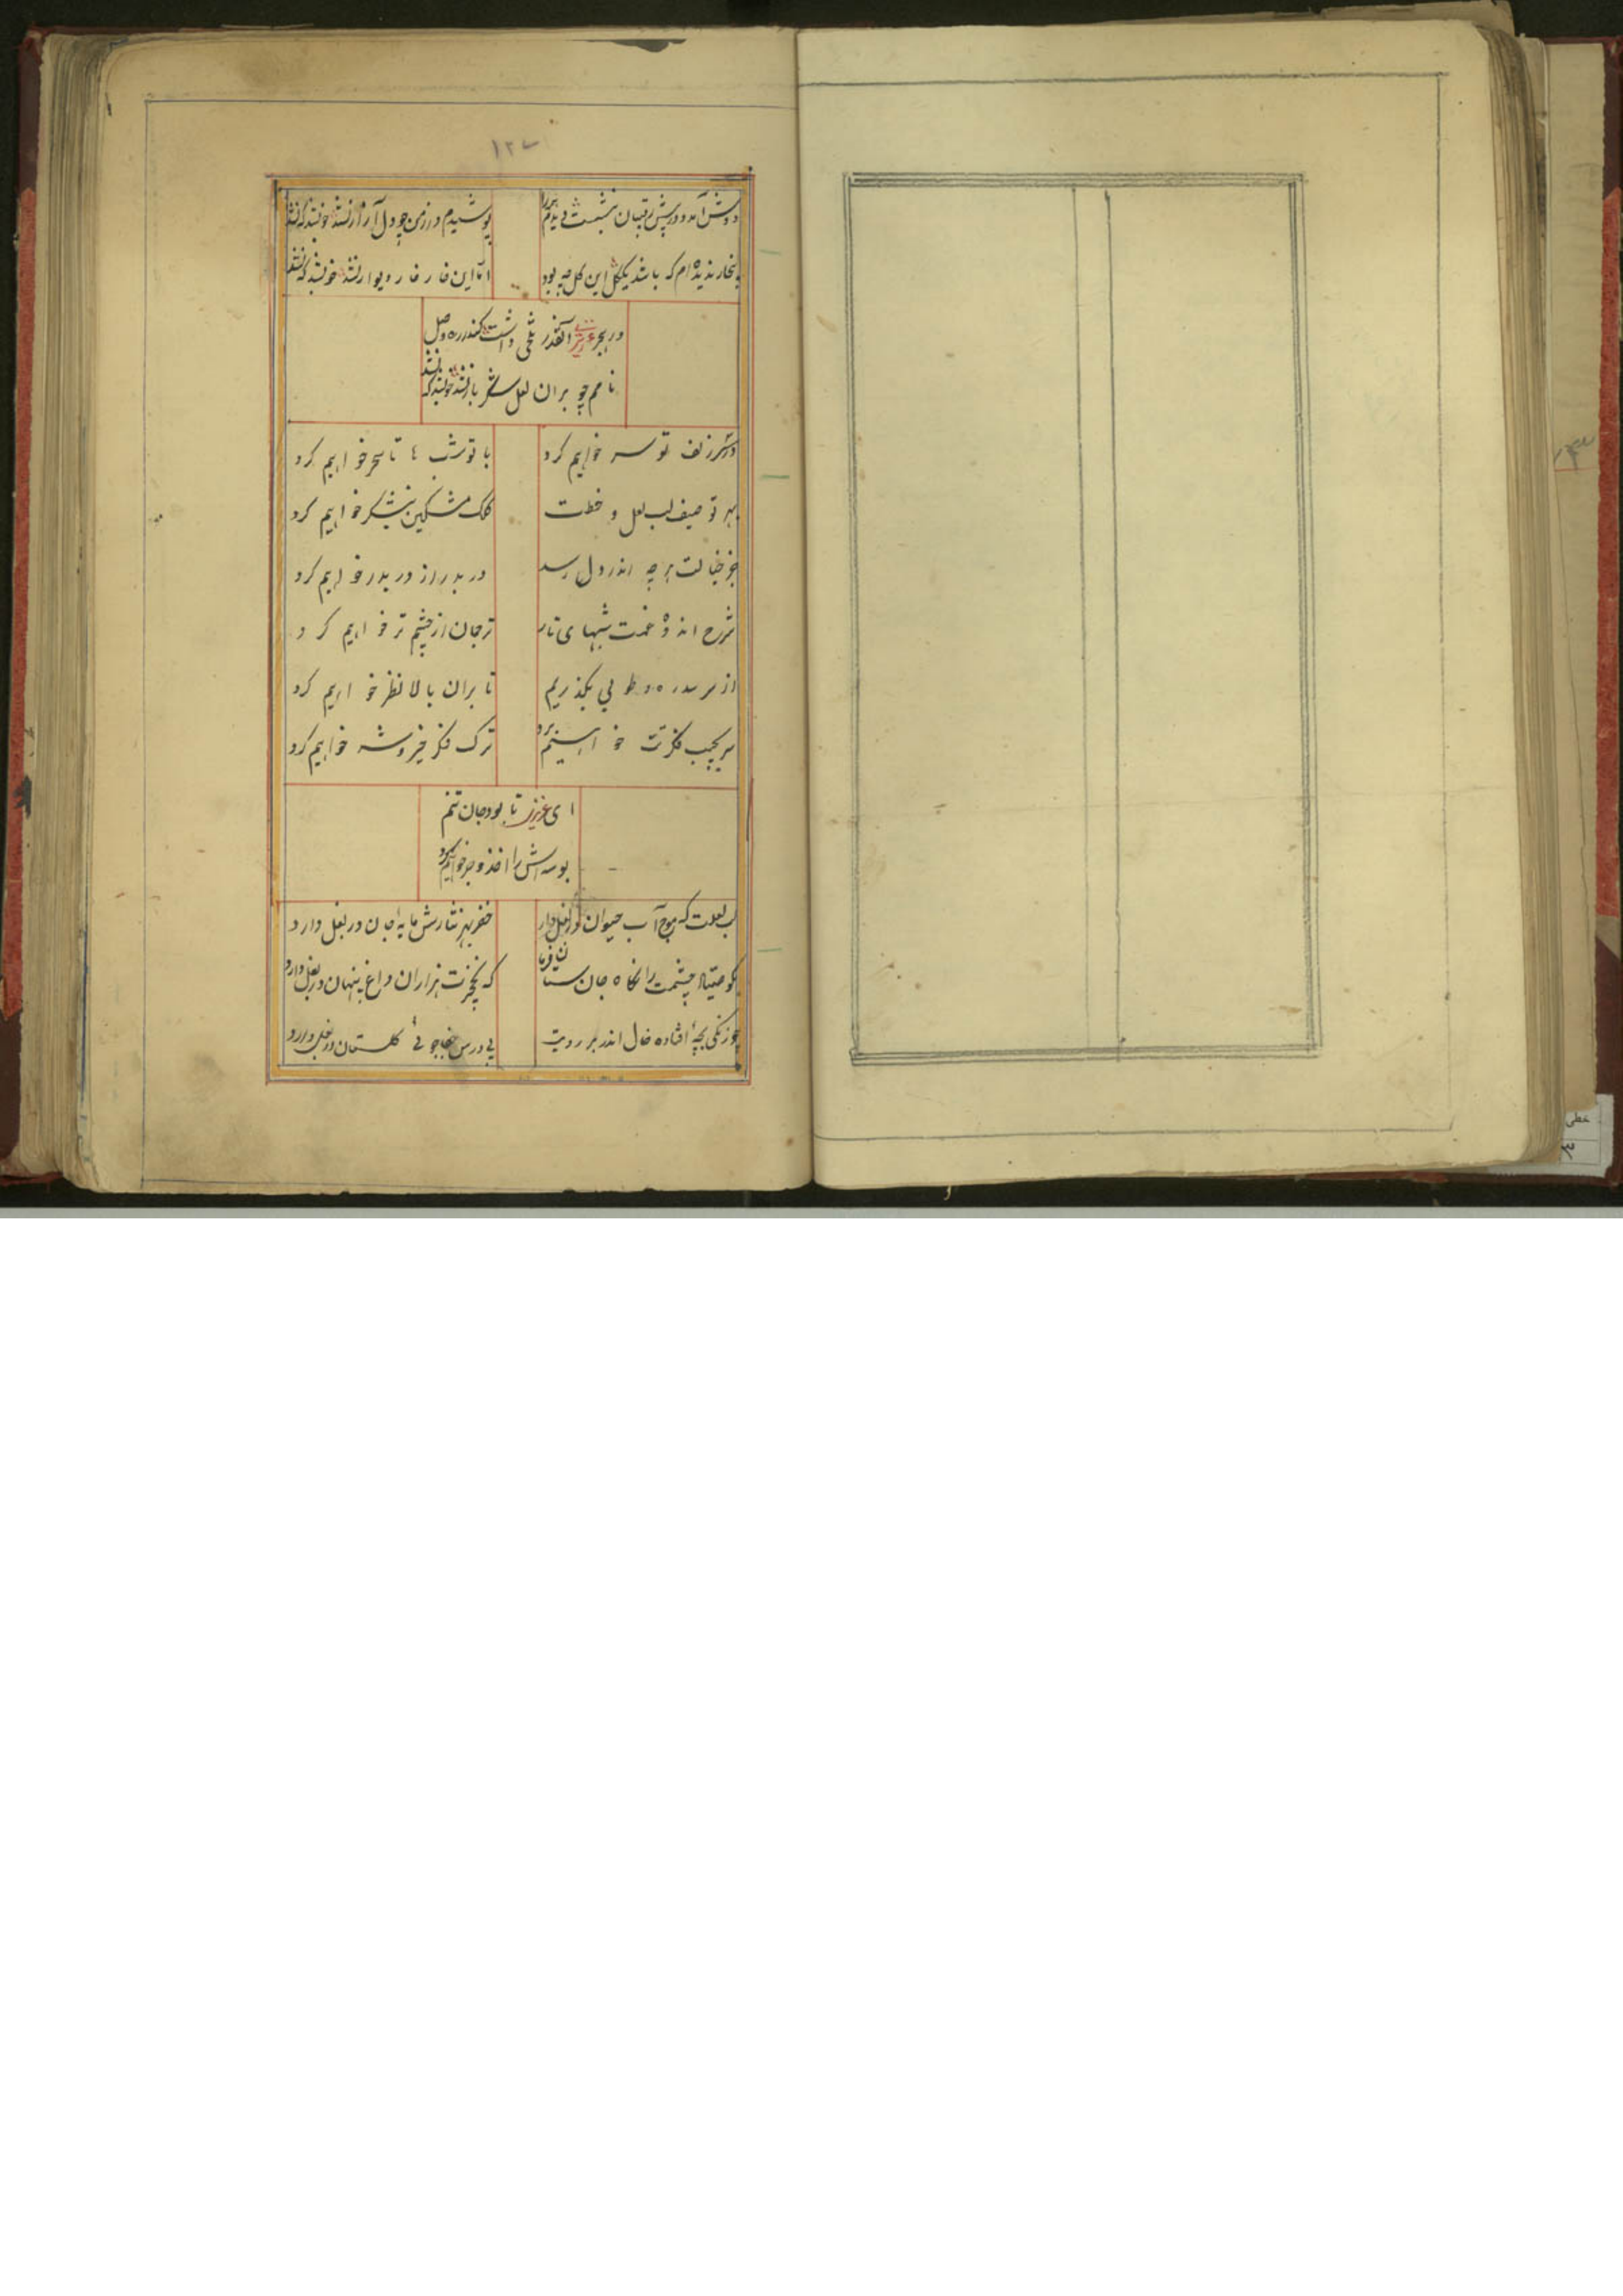 ١٢٧
دوش آمد و در پیش رقیبان بنشست دیدم
پوشیدم در از من چو دل آزار نشد خوبشد که نشد
بیخار ندیده ام که باشد یک گل این گل چه بود
اما این خار خار دیوار نشد خوبشد که نشد
در هجر آنقدر تلخی داشت کندر ره وصل
نامم چو بر آن لعل شکر بار نشد خوبشد که نشد
در سر زلف تو سر خواهیم کرد
با تو شب تا سحر خواهیم کرد
بهر توصیف لب لعل و خطت
کلک مشکین نیشکر خواهیم کرد
جز خیالت هر چه اندر دل رسد
در بدر از در بدر خواهیم کرد
شرح اندوه غمت شبهای تار
ترجمان از چشم تر خواهیم کرد
از سر سدره و طوبی بگذریم
تا بر آن بالا نظر خواهیم کرد
سر بجیب فکرت خواهیم برد
ترک فکر خیر و شر خواهیم کرد
ای عزیز تا بود جان تنم
بوسه اش را اخذ و جر خواهیم کرد
لب لعلت که موج آب حیوان در بغل دارد
خضر بهر نثارش مایه جان در بغل دارد
بگو صیاد چشمت را نگاه جان ستان
که نخجیرت هزاران داغ پنهان در بغل دارد
چو زنگی بچهٔ افتاده خال اندر بر رویت
پی درس گلستان در بغل دارد
خطی